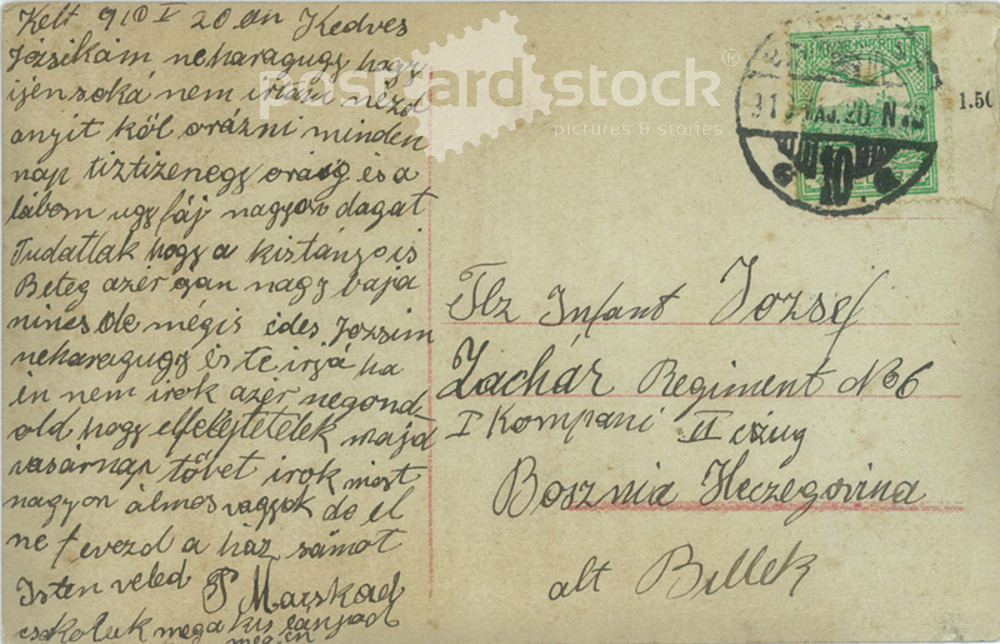 Kelt 910 V 20 án Kedves
Józsikám neharagugy hogy
ijen soká nem irtam nézd
anyit köl orázni minden
nap tiztizenegy oráig és a
lábom ugy fáj nagyon dagat
Tudatlak hogy a kistányois
Beteg azér ojan nagy baja
nincs de mégis édes Jozsim
neharagugy és te irjá ha
én nem irok azér negond
old hogy elfelejtetelek majd
vasárnap tőbet irok most
nagyon álmos vagyok de el
ne fevezd a ház sámot
Isten veled P Mariskad
csokoluk meg a kis lányad
meg én
postcard stock®
pictures & stories
MAJ. 20. N
10
1.50
Infant Jozsef
Zachár Regiment No 6
I Kompani II czug
Bosznia Herczegovina
alt Billek